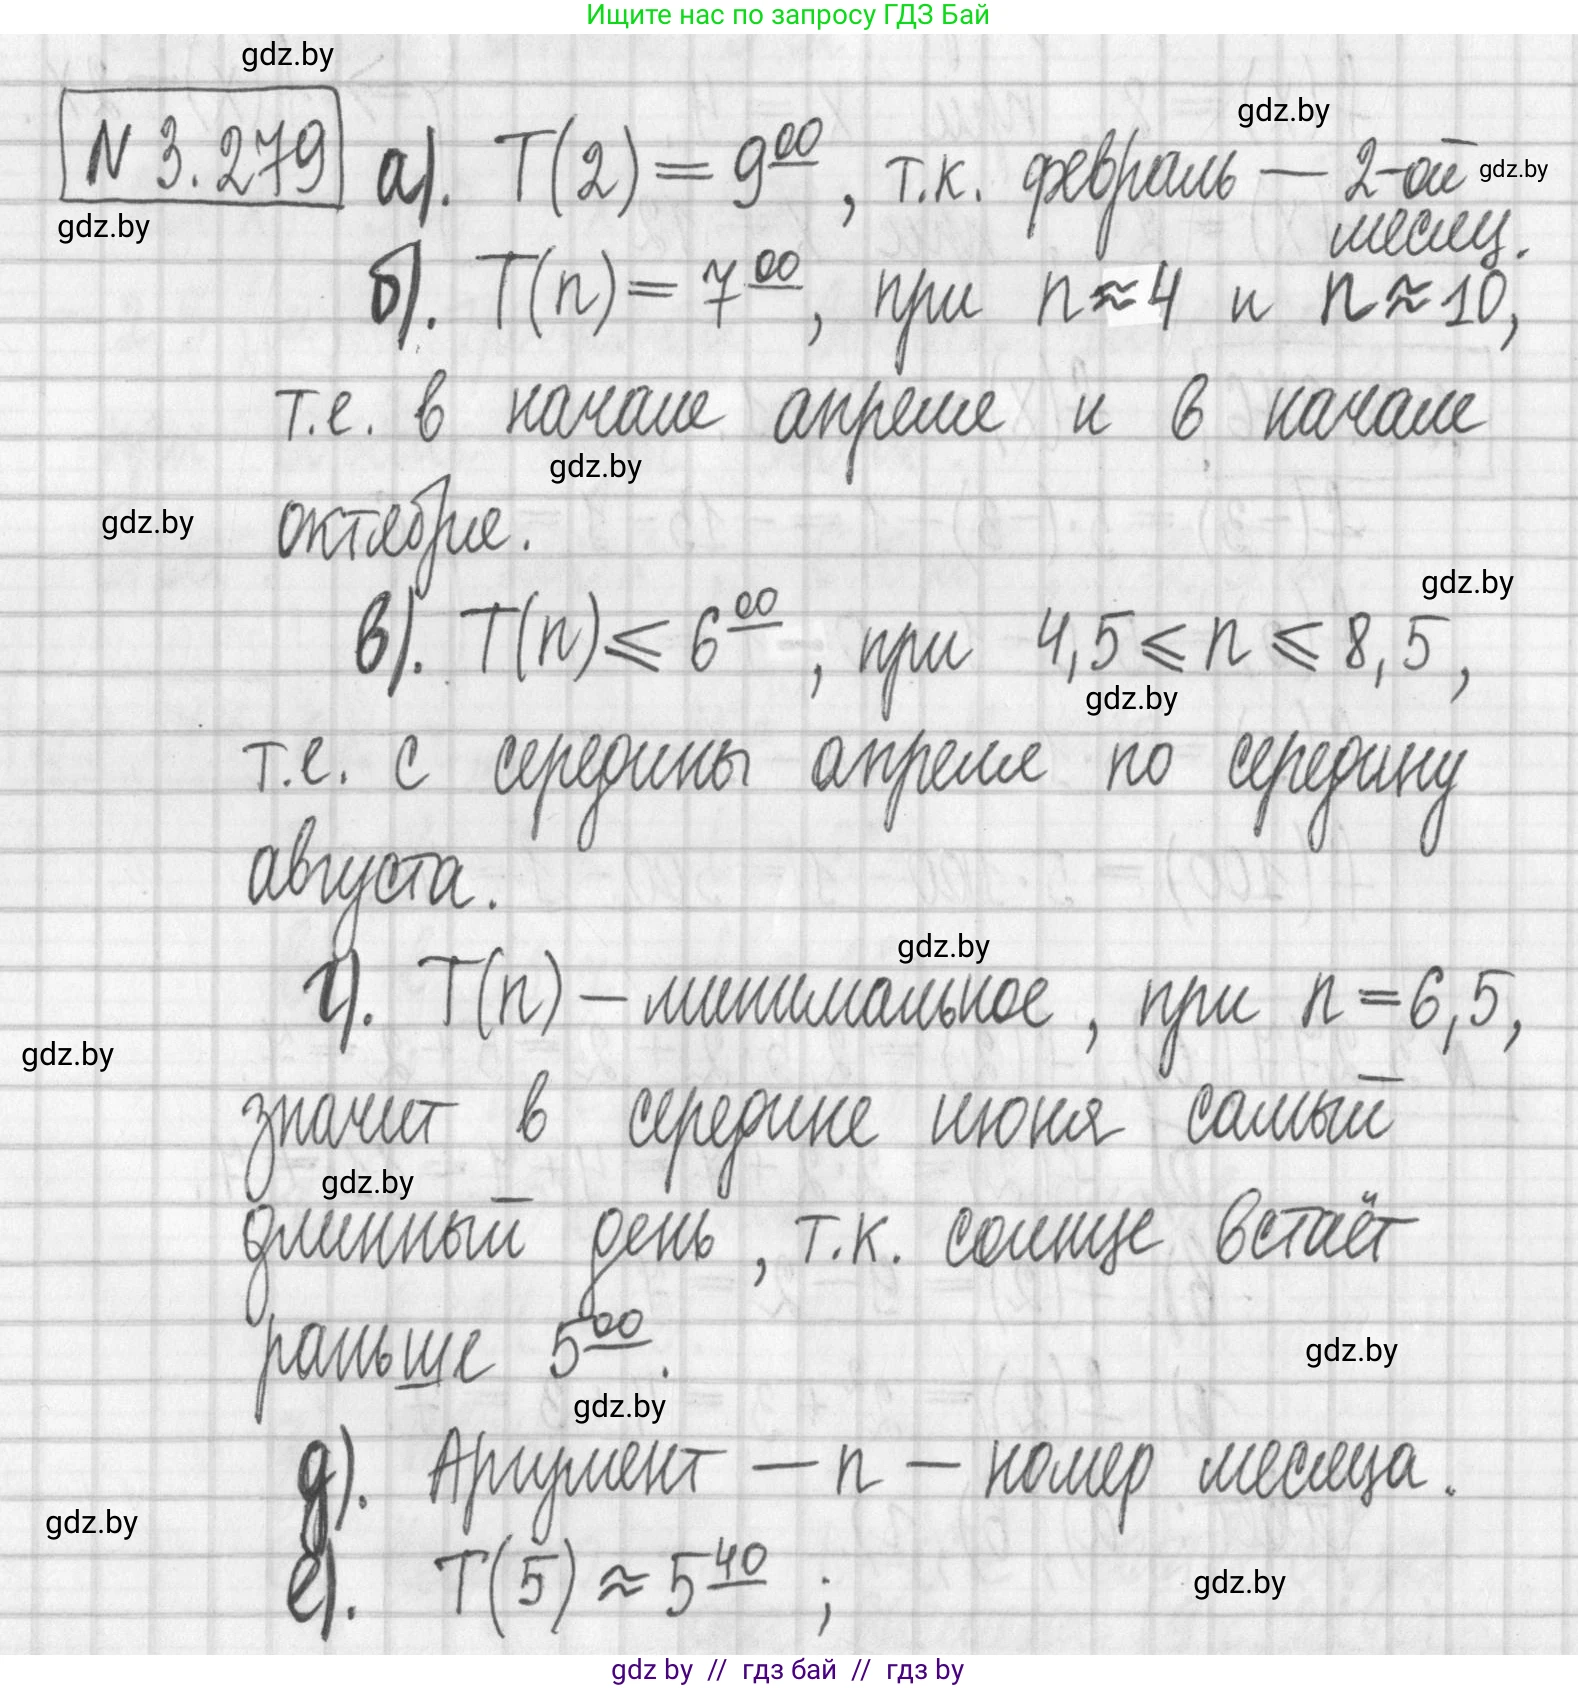 Ищите нас по запросу ГДЗ Бай
gdz.by
gdz.by
N 3.279 а). T(2) = 9⁰⁰, т.к. февраль — 2-ой
gdz.by
gdz.by
месяц.
б). T(n) = 7⁰⁰, при n ≈ 4 и n ≈ 10,
т.е. в начале апреля и в начале
gdz.by
gdz.by
октября.
gdz.by
в). T(n) ⩽ 6⁰⁰, при 4,5 ⩽ n ⩽ 8,5,
gdz.by
т.е. с середины апреля по середину
августа.
gdz.by
г). T(n) – минимальное, при n = 6,5,
gdz.by
значит в середине июня самый
gdz.by
длинный день, т.к. солнце встаёт
раньше 5⁰⁰.
gdz.by
gdz.by
д). Аргумент — n — номер месяца.
gdz.by
е). T(5) ≈ 5⁴⁰ ;
gdz.by
gdz by // гдз бай // гдз by